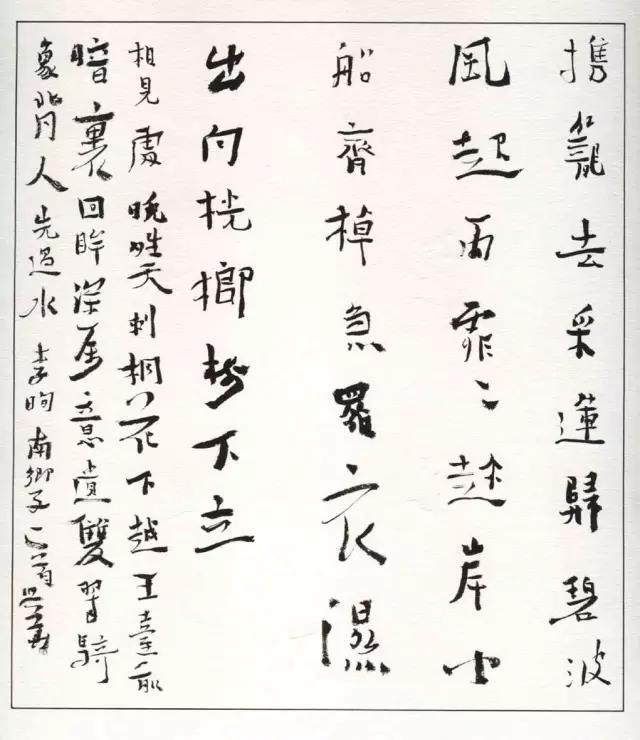 携籠去采蓮歸碧波
風起雨霏〻趁岸小
船齊棹急羅衣濕
出向桄榔樹下立
相見處晚晴天刺桐花下越王臺前
暗裏回眸深属意遺雙翠騎
象背人先過水 李珣南鄉子二首